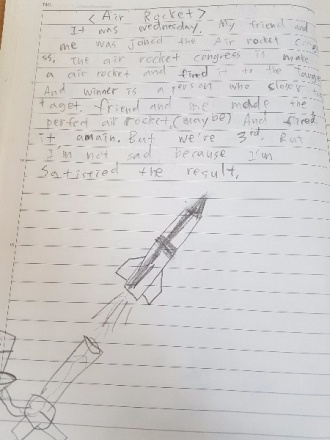 <Air Rocket>
It was wednesday. My friend and
me was joined the Air rocket
ss, The air rocket congress is make
a air rocket and fired it to the
And winner is a person who closer
taget. friend and me made the
perfect air rocket,(maybe) And fired
it again. But we're 3rd. But
I'm not sad because I'm
Satistied the result,